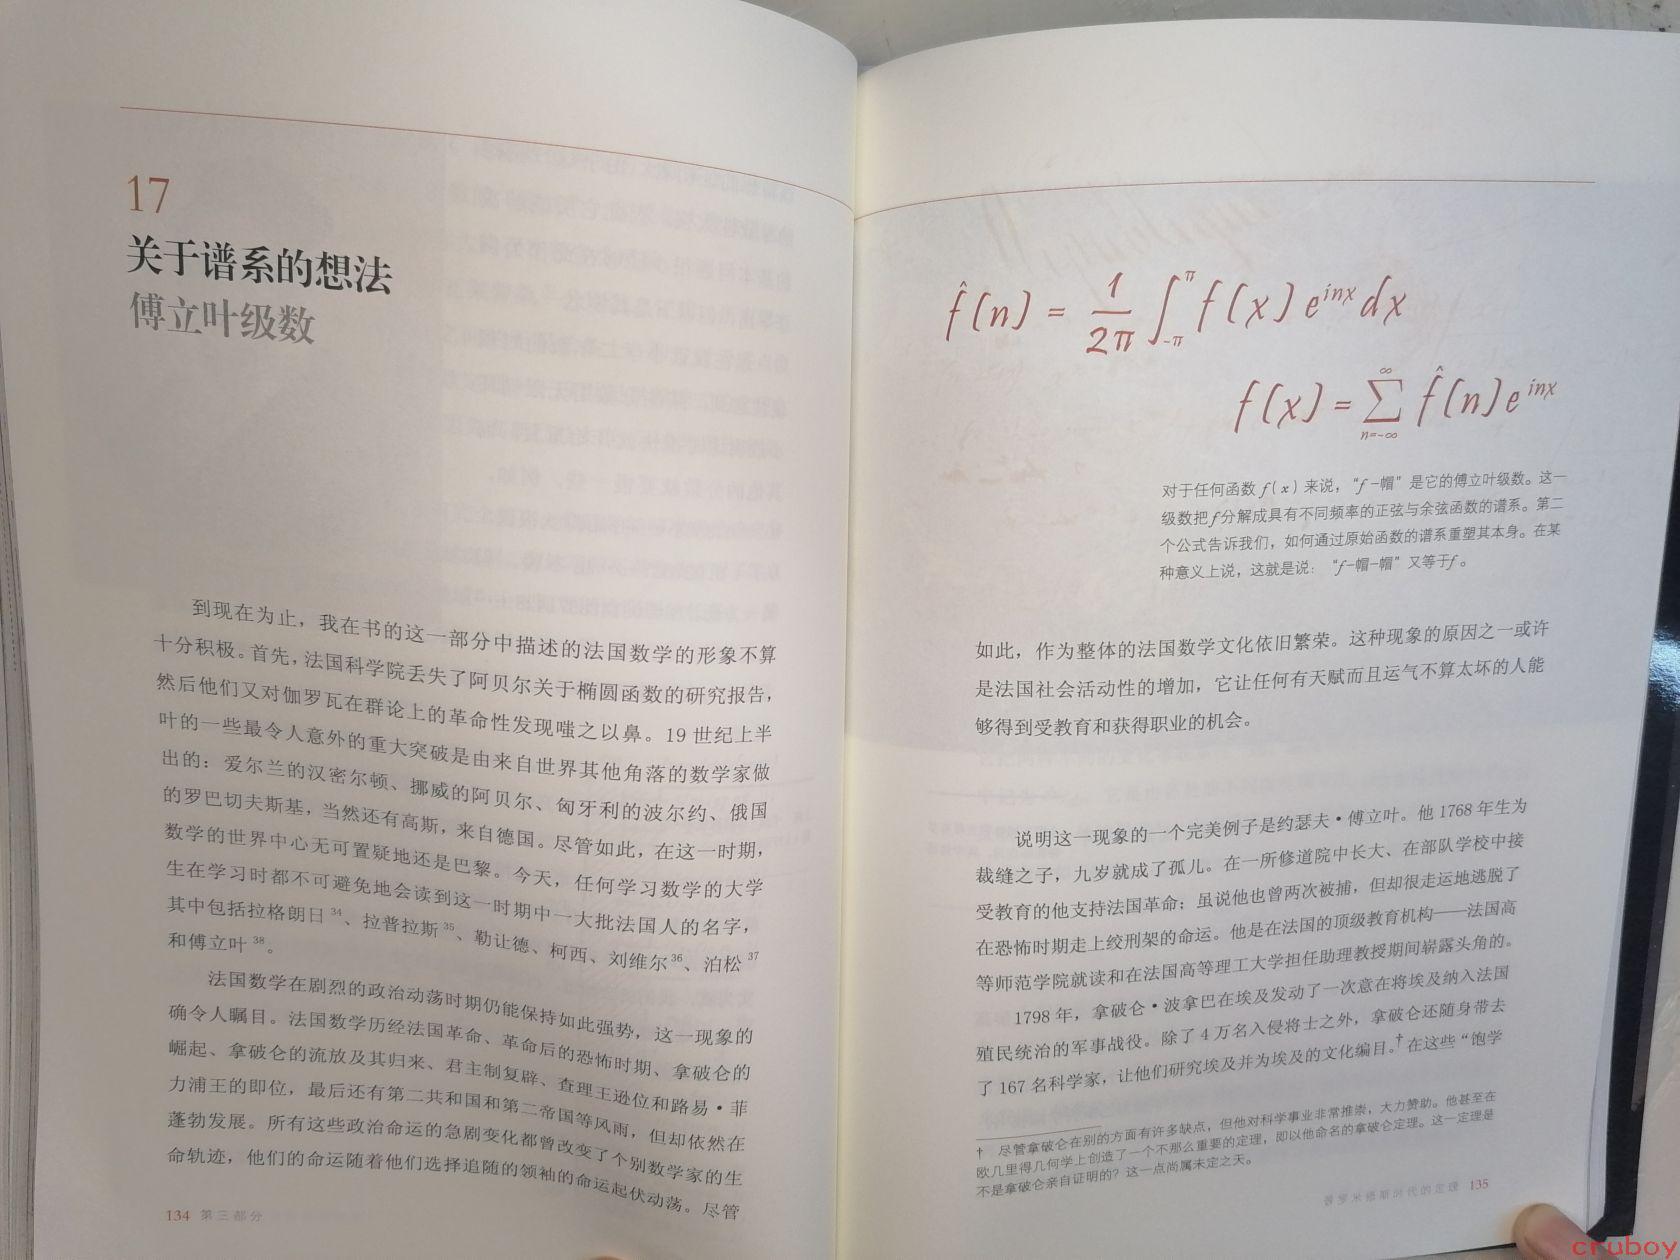 17
关于谱系的想法
傅立叶级数
到现在为止，我在书的这一部分中描述的法国数学的形象不算
十分积极。首先，法国科学院丢失了阿贝尔关于椭圆函数的研究报告，
然后他们又对伽罗瓦在群论上的革命性发现嗤之以鼻。19 世纪上半
叶的一些最令人意外的重大突破是由来自世界其他角落的数学家做
出的：爱尔兰的汉密尔顿、挪威的阿贝尔、匈牙利的波尔约、俄国
的罗巴切夫斯基，当然还有高斯，来自德国。尽管如此，在这一时期，
数学的世界中心无可置疑地还是巴黎。今天，任何学习数学的大学
生在学习时都不可避免地会读到这一时期中一大批法国人的名字，
其中包括拉格朗日³⁴、拉普拉斯³⁵、勒让德、柯西、刘维尔³⁶、泊松³⁷
和傅立叶³⁸。
法国数学在剧烈的政治动荡时期仍能保持如此强势，这一现象的
确令人瞩目。法国数学历经法国革命、革命后的恐怖时期、拿破仑的
崛起、拿破仑的流放及其归来、君主制复辟、查理王逊位和路易·菲
力浦王的即位，最后还有第二共和国和第二帝国等风雨，但却依然在
蓬勃发展。所有这些政治命运的急剧变化都曾改变了个别数学家的生
命轨迹，他们的命运随着他们选择追随的领袖的命运起伏动荡。尽管
134 第三部分
f̂(n) = 1/2π ∫_{-π}^{π} f(x) e^{inx} dx
f(x) = ∑_{n=-∞}^{∞} f̂(n) e^{inx}
对于任何函数 f(x) 来说，“f-帽”是它的傅立叶级数。这一
级数把f分解成具有不同频率的正弦与余弦函数的谱系。第二
个公式告诉我们，如何通过原始函数的谱系重塑其本身。在某
种意义上说，这就是说：“f-帽-帽”又等于f。
如此，作为整体的法国数学文化依旧繁荣。这种现象的原因之一或许
是法国社会活动性的增加，它让任何有天赋而且运气不算太坏的人能
够得到受教育和获得职业的机会。
说明这一现象的一个完美例子是约瑟夫·傅立叶。他 1768 年生为
裁缝之子，九岁就成了孤儿。在一所修道院中长大、在部队学校中接
受教育的他支持法国革命；虽说他也曾两次被捕，但却很走运地逃脱了
在恐怖时期走上绞刑架的命运。他是在法国的顶级教育机构——法国高
等师范学院就读和在法国高等理工大学担任助理教授期间崭露头角的。
1798 年，拿破仑·波拿巴在埃及发动了一次意在将埃及纳入法国
殖民统治的军事战役。除了 4 万名入侵将士之外，拿破仑还随身带去
了 167 名科学家，让他们研究埃及并为埃及的文化编目。†在这些“饱学
† 尽管拿破仑在别的方面有许多缺点，但他对科学事业非常推崇，大力赞助。他甚至在
欧几里得几何学上创造了一个不那么重要的定理，即以他命名的拿破仑定理。这一定理是
不是拿破仑亲自证明的？这一点尚属未定之天。
普罗米修斯时代的定理 135
cruboy